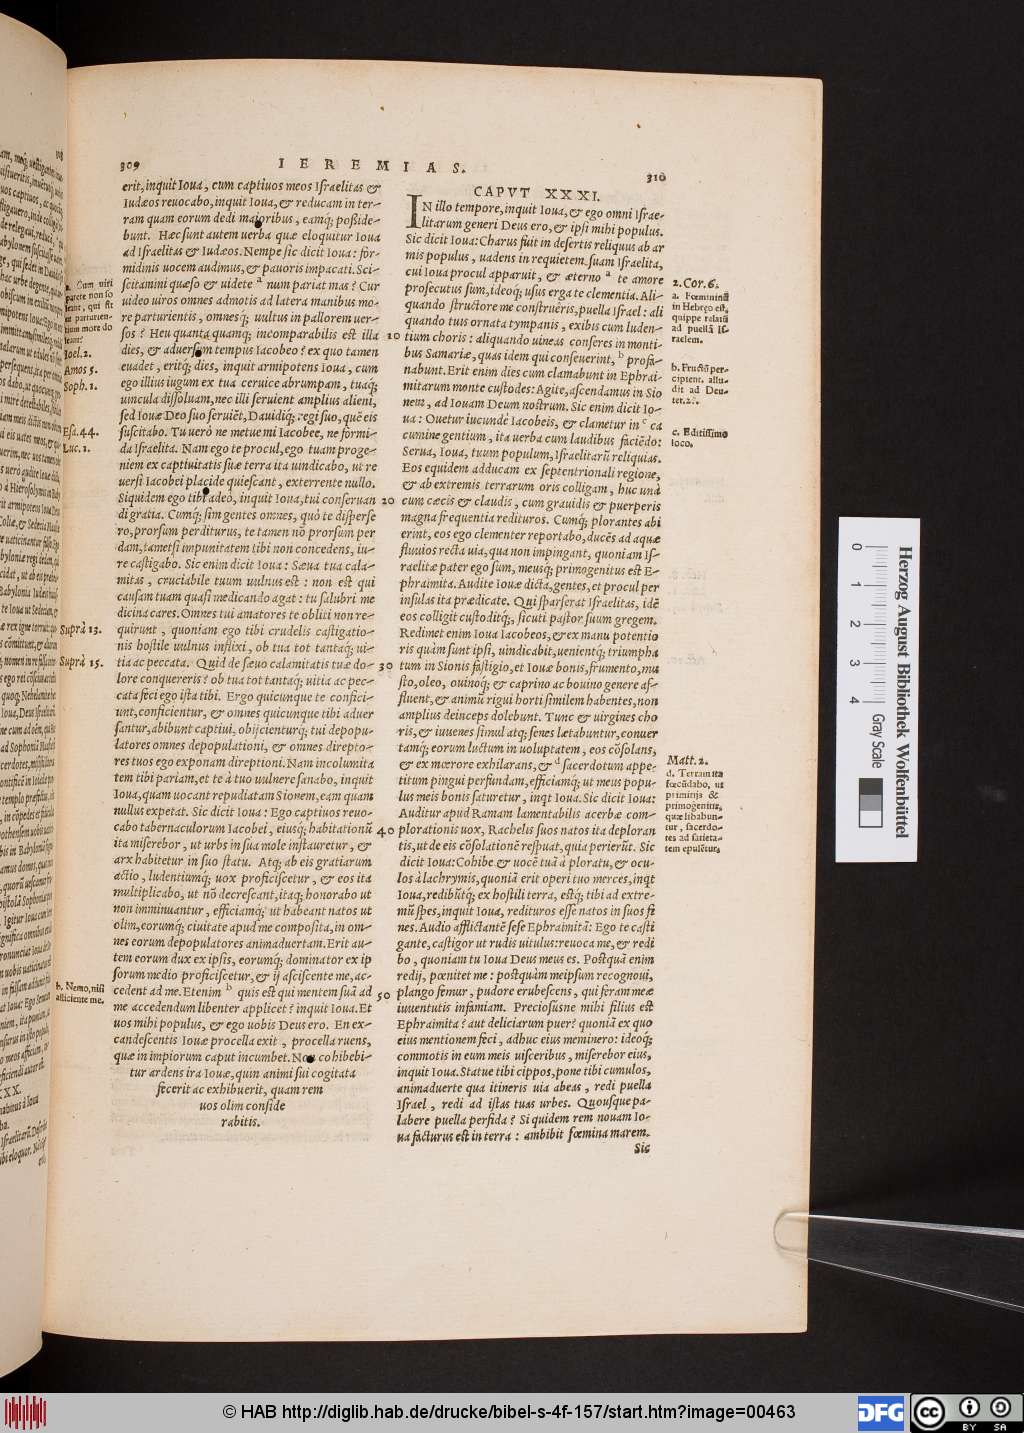 309
IEREMIAS.
310
erit, inquit Ioua, cum captiuos meos Israelitas &
Iudæos reuocabo, inquit Ioua, & reducam in ter-
ram quam eorum dedi maioribus, eamq; poßide-
bunt. Hæc sunt autem uerba quæ eloquitur Ioua
ad Israelitas & Iudæos. Nempe sic dicit Ioua: for-
midinis uocem audimus, & pauoris impacati. Sci-
scitamini quæso & uidete ᵃ num pariat mas? Cur
uideo uiros omnes admotis ad latera manibus mo-
re parturientis, omnesq; uultus in pallorem uer-
sos? Heu quanta quamq; incomparabilis est illa
dies, & aduersum tempus Iacobeo? ex quo tamen
euadet, eritq; dies, inquit armipotens Ioua, cum
ego illius iugum ex tua ceruice abrumpam, tuaq;
uincula dissoluam, nec illi seruient amplius alieni,
sed Iouæ Deo suo seruiẽt, Dauidiq; regi suo, quẽ eis
suscitabo. Tu uerò ne metue mi Iacobee, ne formi-
da Israelita. Nam ego te procul, ego tuam proge-
niem ex captiuitatis suæ terra ita uindicabo, ut re
uersi Iacobei placide quiescant, exterrente nullo.
Siquidem ego tibi adeò, inquit Ioua, tui conseruan
di gratia. Cumq; sim gentes omnes, quò te disperse
ro, prorsum perditurus, te tamen nõ prorsum per
dam, tametsi impunitatem tibi non concedens, iu-
re castigabo. Sic enim dicit Ioua: Sæua tua cala-
mitas, cruciabile tuum uulnus est: non est qui
causam tuam quasi medicando agat: tu salubri me
dicina cares. Omnes tui amatores te obliti non re-
quirunt, quoniam ego tibi crudelis castigatio-
nis hostile uulnus inflixi, ob tua tot tantaq; ui-
tia ac peccata. Quid de sæuo calamitatis tuæ do-
lore conquereris? ob tua tot tantaq; uitia ac pec-
cata feci ego ista tibi. Ergo quicunque te confici-
unt, conficientur, & omnes quicunque tibi aduer
santur, abibunt captiui, obijcienturq; tui depopu-
latores omnes depopulationi, & omnes direpto-
res tuos ego exponam direptioni. Nam incolumita
tem tibi pariam, et te à tuo uulnere sanabo, inquit
Ioua, quam uocant repudiatam Sionem, eam quam
nullus expetat. Sic dicit Ioua: Ego captiuos reuo-
cabo tabernaculorum Iacobei, eiusq; habitationũ
ita miserebor, ut urbs in sua mole instauretur, &
arx habitetur in suo statu. Atq; ab eis gratiarum
actio, ludentiumq; uox proficiscetur, & eos ita
multiplicabo, ut nõ decrescant, itaq; honorabo ut
non imminuantur, efficiamq; ut habeant natos ut
olim, eorumq; ciuitate apud me composita, in om-
nes eorum depopulatores animaduertam. Erit au-
tem eorum dux ex ipsis, eorumq; dominator ex ip
sorum medio proficiscetur, & ij asciscente me, ac-
cedent ad me. Etenim ᵇ quis est qui mentem suã ad
me accedendum libenter applicet? inquit Ioua. Et
uos mihi populus, & ego uobis Deus ero. En ex-
candescentis Iouæ procella exit, procella ruens,
quæ in impiorum caput incumbet. Non cohibebi-
tur ardens ira Iouæ, quin animi sui cogitata
fecerit ac exhibuerit, quam rem
uos olim conside
rabitis.
a. Cum uiri
parere non so
leant, qui fit
ut parturien-
tium more do
leant?
Ioel.2.
Amos 5.
Soph.1.
Esa.44.
Luc.1.
Suprà 13.
Suprà 15.
b. Nemo, nisi
afficiente me.
10
20
30
40
50
CAPVT XXXI.
IN illo tempore, inquit Ioua, & ego omni Israe-
litarum generi Deus ero, & ipsi mihi populus.
Sic dicit Ioua: Charus fuit in desertis reliquus ab ar
mis populus, uadens in requietem suam Israelita,
cui Ioua procul apparuit, & æterno ᵃ te amore
prosecutus sum, ideoq; usus erga te clementia. Ali-
quando structore me construeris, puella Israel: ali
quando tuis ornata tympanis, exibis cum luden-
tium choris: aliquando uineas conseres in monti-
bus Samariæ, quas idem qui conseuerint, ᵇ profa-
nabunt. Erit enim dies cum clamabunt in Ephrai-
mitarum monte custodes: Agite, ascendamus in Sio
nem, ad Iouam Deum nostrum. Sic enim dicit Io-
ua: Ouetur iucundè Iacobeis, & clametur in ᶜ ca
cumine gentium, ita uerba cum laudibus faciẽdo:
Serua, Ioua, tuum populum, Israelitarũ reliquias.
Eos equidem adducam ex septentrionali regione,
& ab extremis terrarum oris colligam, huc unà
cum cæcis & claudis, cum grauidis & puerperis
magna frequentia redituros. Cumq; plorantes abi
erint, eos ego clementer reportabo, ducẽs ad aquæ
fluuios recta uia, qua non impingant, quoniam Is-
raelitæ pater ego sum, meusq; primogenitus est E-
phraimita. Audite Iouæ dicta, gentes, et procul per
insulas ita prædicate. Qui sparserat Israelitas, idẽ
eos colligit custoditq;, sicuti pastor suum gregem.
Redimet enim Ioua Iacobeos, & ex manu potentio
ris quàm sunt ipsi, uindicabit, uenientq; triumpha
tum in Sionis fastigio, et Iouæ bonis, frumento, mu
sto, oleo, ouinoq; & caprino ac bouino genere af-
fluent, & animũ rigui horti similem habentes, non
amplius deinceps dolebunt. Tunc & uirgines cho
ris, & iuuenes simul atq; senes lætabuntur, conuer
tamq; eorum luctum in uoluptatem, eos cõsolans,
& ex mœrore exhilarans, & ᵈ sacerdotum appe-
titum pingui perfundam, efficiamq; ut meus popu-
lus meis bonis saturetur, inqt Ioua. Sic dicit Ioua:
Auditur apud Ramam lamentabilis acerbæ com-
plorationis uox, Rachelis suos natos ita deploran
tis, ut de eis cõsolationẽ respuat, quia perierũt. Sic
dicit Ioua: Cohibe & uocẽ tuã à ploratu, & ocu-
los à lachrymis, quoniã erit operi tuo merces, inqt
Ioua, redibũtq; ex hostili terra, estq; tibi ad extre-
mũ spes, inquit Ioua, redituros esse natos in suos fi
nes. Audio afflictantẽ sese Ephraimitã: Ego te casti
gante, castigor ut rudis uitulus: reuoca me, & redi
bo, quoniam tu Ioua Deus meus es. Postquã enim
redij, pœnitet me: postquàm meipsum recognoui,
plango femur, pudore erubescens, qui feram meæ
iuuentutis infamiam. Preciosusne mihi filius est
Ephraimita? aut deliciarum puer? quoniã ex quo
eius mentionem feci, adhuc eius meminero: ideoq;
commotis in eum meis uisceribus, miserebor eius,
inquit Ioua. Statue tibi cippos, pone tibi cumulos,
animaduerte qua itineris uia abeas, redi puella
Israel, redi ad istas tuas urbes. Quousque pa-
labere puella perfida? Si quidem rem nouam Io-
ua facturus est in terra: ambibit fœmina marem.
Sic
2.Cor.6.
a. Fœmininũ
in Hebręo est,
quippe relatũ
ad puellã Is-
raelem.
b. Fructũ per-
cipient. allu-
dit ad Deu-
ter.2.
c. Editissimo
loco.
Matt.2.
d. Terram ita
fœcũdabo, ut
primitijs &
primogenitis,
quæ libabun-
tur, sacerdo-
tes ad satieta-
tem epulẽtur.
Herzog August Bibliothek Wolfenbüttel
0 1 2 3 4
Gray Scale
© HAB http://diglib.hab.de/drucke/bibel-s-4f-157/start.htm?image=00463
DFG
cc BY SA